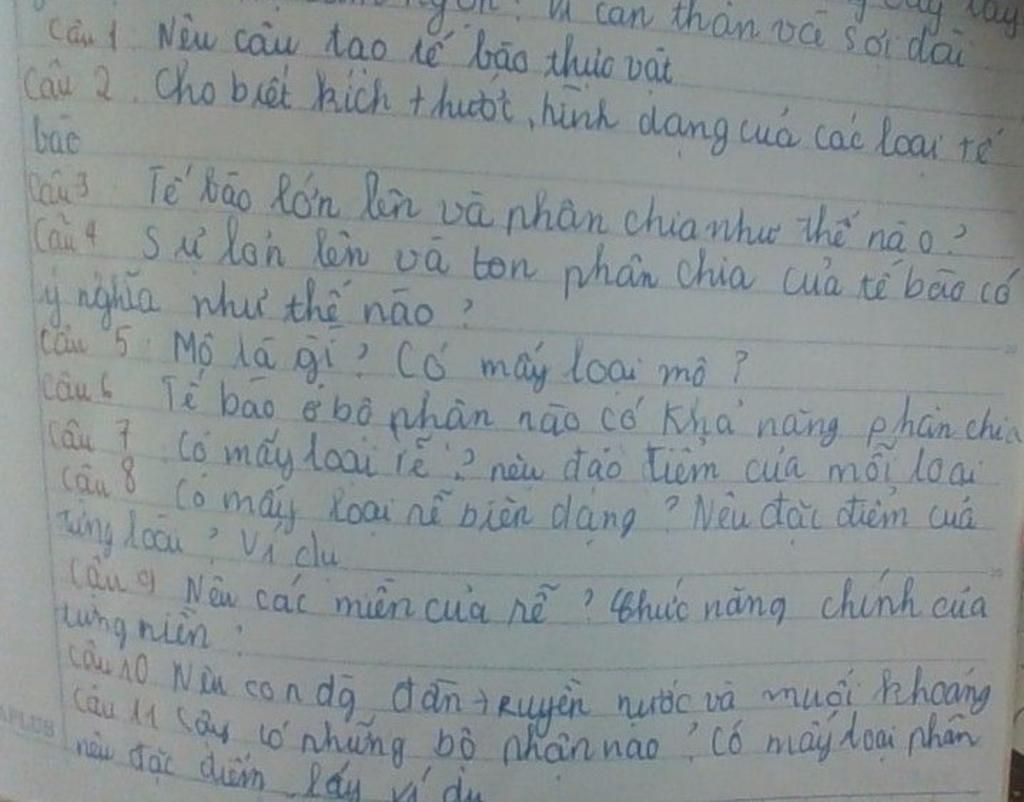 cẩn thận và sợi dài
Câu 1 Nêu cấu tạo tế bào thực vật
Câu 2. Cho biết kích thướt, hình dạng cuả các loại tế
bào
Câu 3 Tế bào lớn lên và phân chia như thế nào?
Câu 4 Sự lơn lên và ton phân chia của tế bào có
ý nghĩa như thế nào?
Câu 5: Mô là gì? Có mấy loại mô?
Câu 6 Tế bào ở bộ phân nào có khả năng phân chia
Câu 7 Có mấy loại rễ? nêu đăc tiêm của mỗi loại
Câu 8 Có mấy loại rễ biến dạng? Nêu đặc điểm cuả
từng loại? Ví dụ
Câu 9 Nêu các miền của rễ? chức năng chính của
từng niền?
Câu 10 Nêu con dg dẫn truyền nước và muối khoáng
Câu 11 Cây có những bộ phận nào? Có mấy loại phân
nêu đặc điểm lấy ví dụ